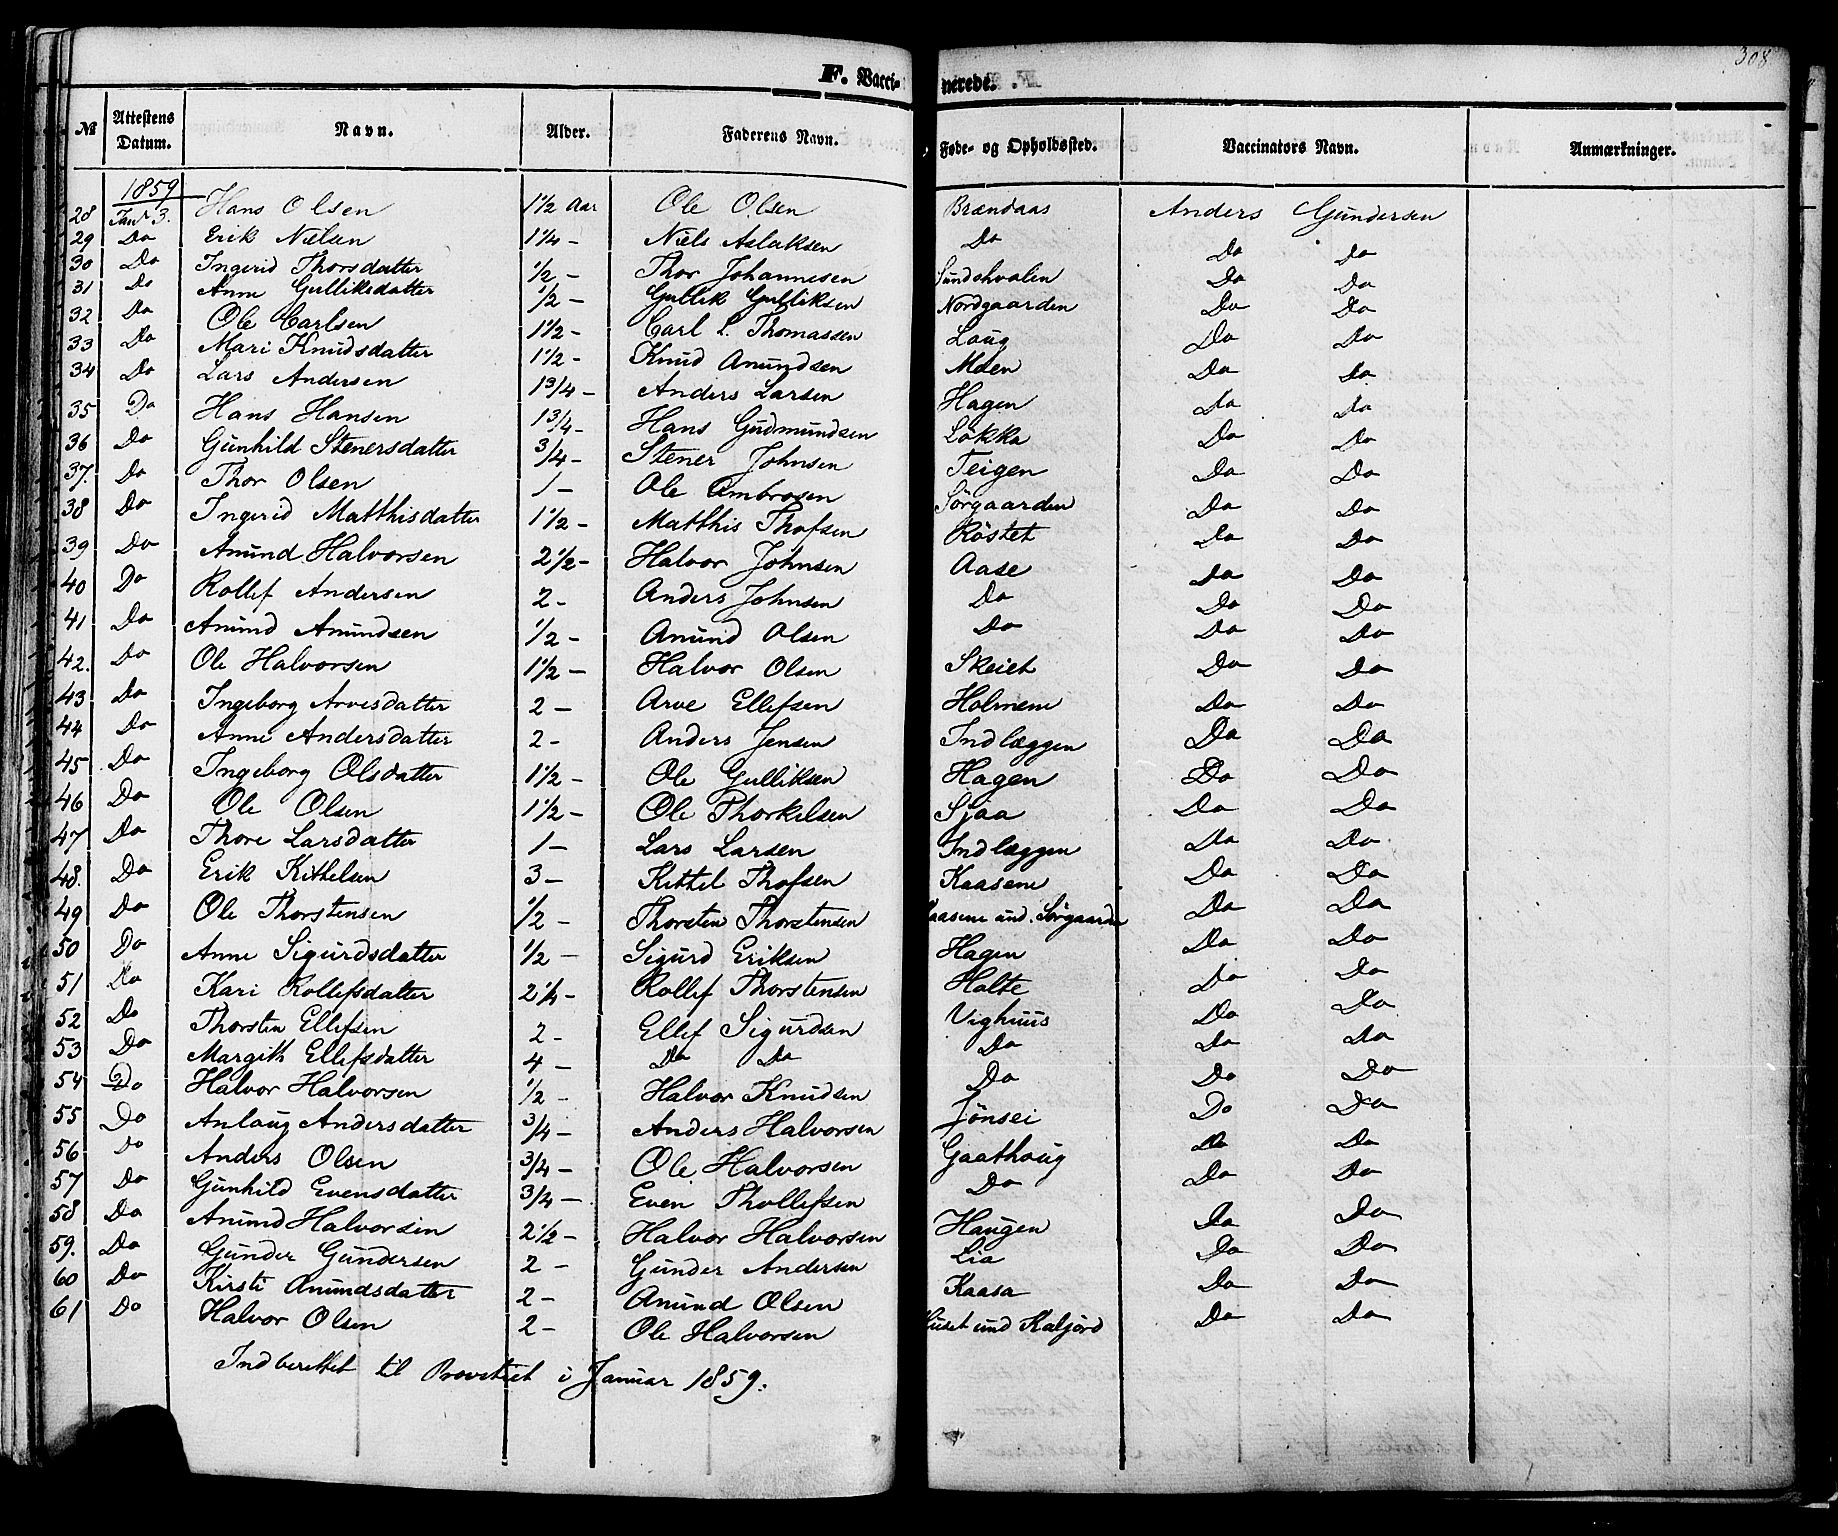 308
F. Vaccinerede.
№ Attestens Datum. Navn. Alder. Faderens Navn. Føde- og Opholdssted. Vaccinators Navn. Anmærkninger.
1859
28 Janr 3. Hans Olsen 1½ Aar Ole Olsen Brændaas Anders Gundersen
29 Do Erik Nielsen 1¼ - Niels Aslaksen Do Do Do
30 Do Ingerid Thorsdatter ½ - Thor Johannesen Sundshvalen Do Do
31 Do Anne Gulliksdatter ½ - Gullik Gulliksen Nordgaarden Do Do
32 Do Ole Carlsen 1½ - Carl L. Thomassen Laug Do Do
33 Do Mari Knudsdatter 1½ - Knud Anundsen Moen Do Do
34 Do Lars Andersen 1¾ - Anders Larsen Hagen Do Do
35 Do Hans Hansen 1¾ - Hans Gudmundsen Løkka Do Do
36 Do Gunhild Stenersdatter ¾ - Stener Johnsen Teigen Do Do
37. Do Thor Olsen 1 - Ole Ambrosen Sørgaarden Do Do
38 Do Ingerid Matthisdatter 1½ - Matthis Thofsen Røstet Do Do
39 Do Anund Halvorsen 2½ - Halvor Johnsen Aase Do Do
40 Do Rollef Andersen 2 - Anders Johnsen Do Do Do
41 Do Anund Anundsen ½ - Anund Olsen Do Do Do
42. Do Ole Halvorsen 1½ - Halvor Olsen Skeiet Do Do
43 Do Ingeborg Arvesdatter 2 - Arve Ellefsen Holmene Do Do
44 Do Anne Andersdatter 2 - Anders Jensen Indlæggen Do Do
45 Do Ingeborg Olsdatter 1½ - Ole Gulliksen Hagen Do Do
46 Do Ole Olsen 1½ - Ole Thorkelsen Sjaa Do Do
47 Do Thore Larsdatter 1 - Lars Larsen Indlæggen Do Do
48. Do Erik Kittelsen 3 - Kittel Thofsen Kaasene Do Do
49 Do Ole Thorstensen ½ - Thorsten Thorstensen Kaasene und. Sørgaarden Do Do
50 Do Anne Sigurdsdatter ½ - Sigurd Eriksen Hagen Do Do
51 Do Kari Rollefsdatter 2¼ - Rollef Thorstensen Holte Do Do
52 Do Thorsten Ellefsen 2 - Ellef Sigurdsen Vighuus Do Do
53 Do Margith Ellefsdatter 4 - Do Do Do Do Do
54 Do Halvor Halvorsen ½ - Halvor Knudsen Do Do Do
55 Do Anlaug Andersdatter ¾ - Anders Halvorsen Jønsei Do Do
56 Do Anders Olsen ¾ - Ole Halvorsen Gaathoug Do Do
57 Do Gunhild Evensdatter ¾ - Even Thollefsen Do Do Do
58 Do Anund Halvorsen 2½ - Halvor Halvorsen Haugen Do Do
59. Do Gunder Gundersen 2 - Gunder Andersen Lia Do Do
60 Do Kirsti Anundsdatter 2 - Anund Olsen Kaasa Do Do
61 Do Halvor Olsen 2 - Ole Halvorsen Huset und Kaljord Do Do
Indberettet til Provstiet i Januar 1859.